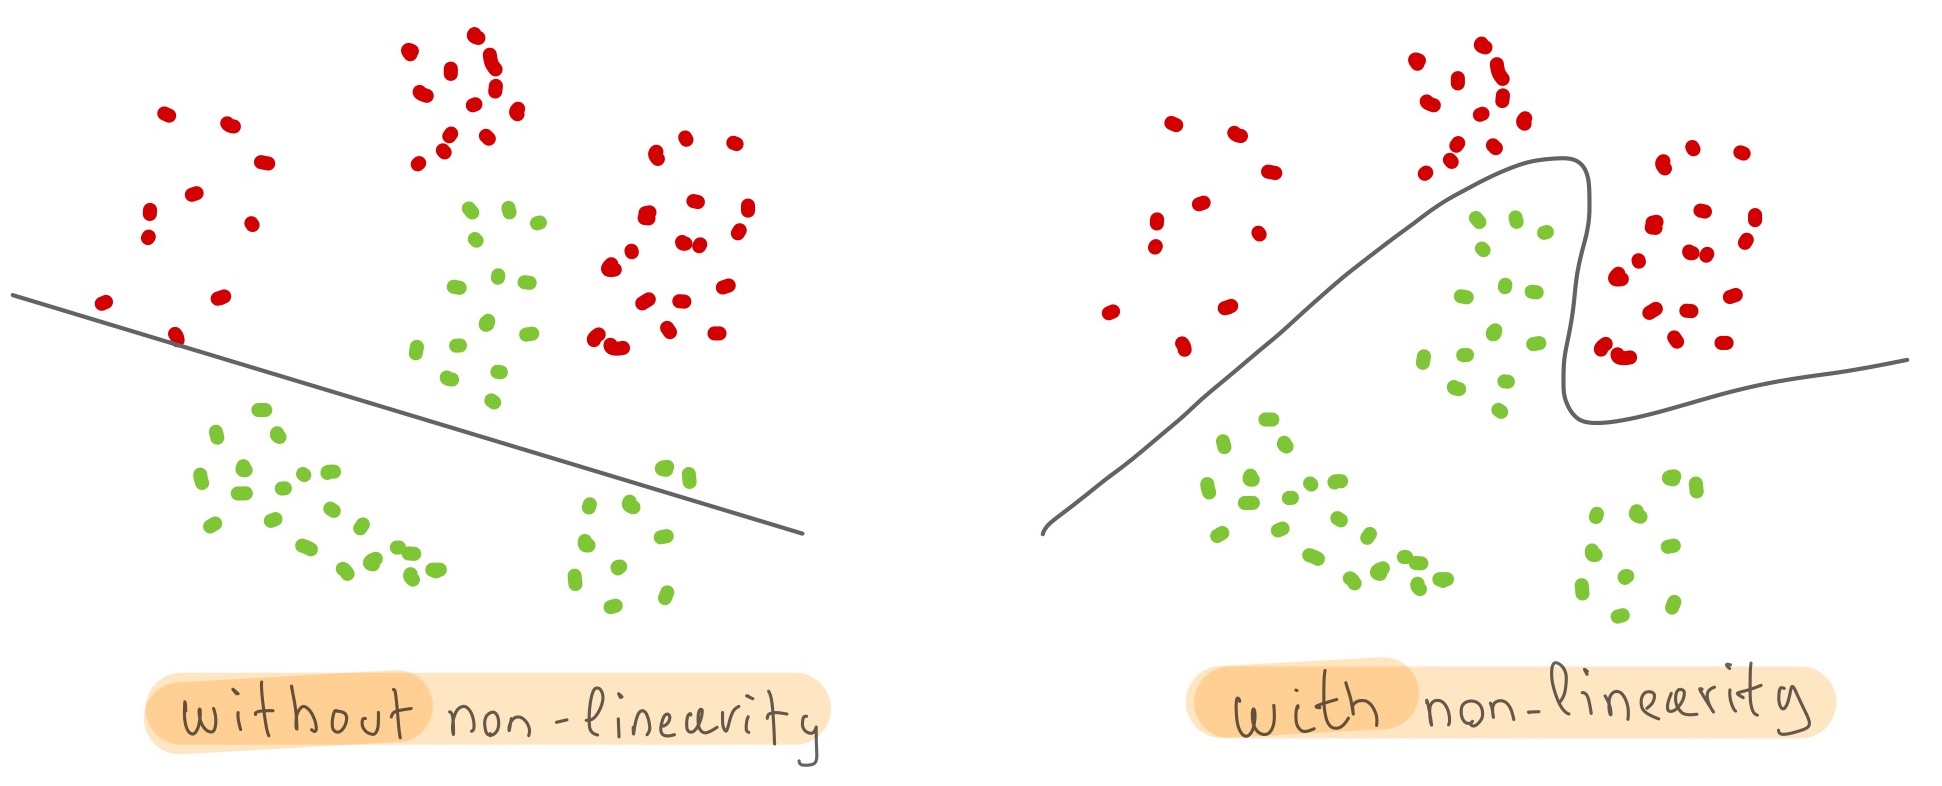 without non-linearity
with non-linearity